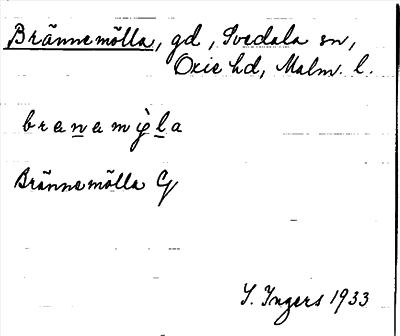 Brännemölla, gd, Svedala sn,
Oxie hd, Malm. l.
branamỳla
Brännemölla G
I. Ingers 1933